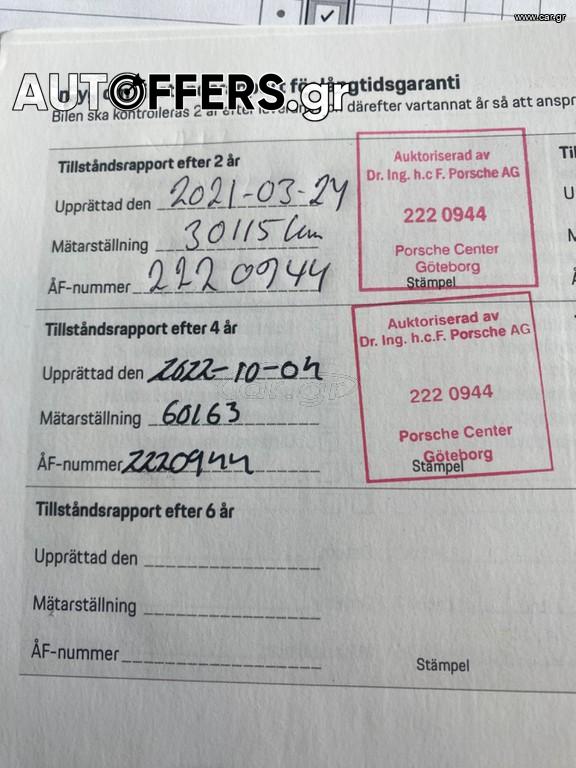 www.car.gr
AUTOFFERS.gr
för långtidsgaranti
Bilen ska kontrolleras 2 år efter därefter vartannat år så att
Tillståndsrapport efter 2 år
Upprättad den 2021-03-24
Mätarställning 30115 km
ÅF-nummer 222 0944
Auktoriserad av
Dr. Ing. h.c F. Porsche AG
222 0944
Porsche Center
Göteborg
Stämpel
Tillståndsrapport efter 4 år
Upprättad den 2022-10-04
Mätarställning 60163
ÅF-nummer 2220944
Auktoriserad av
Dr. Ing. h.c.F. Porsche AG
222 0944
Porsche Center
Göteborg
Stämpel
car.gr
Tillståndsrapport efter 6 år
Upprättad den
Mätarställning
ÅF-nummer
Stämpel